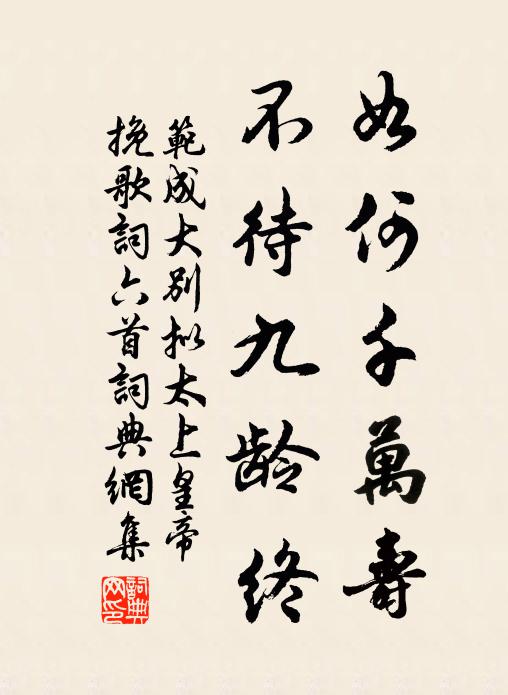 如何千萬壽
不待九龄終
範成大别擬太上皇帝
挽歌詞六首詞典網集
詞典
网印